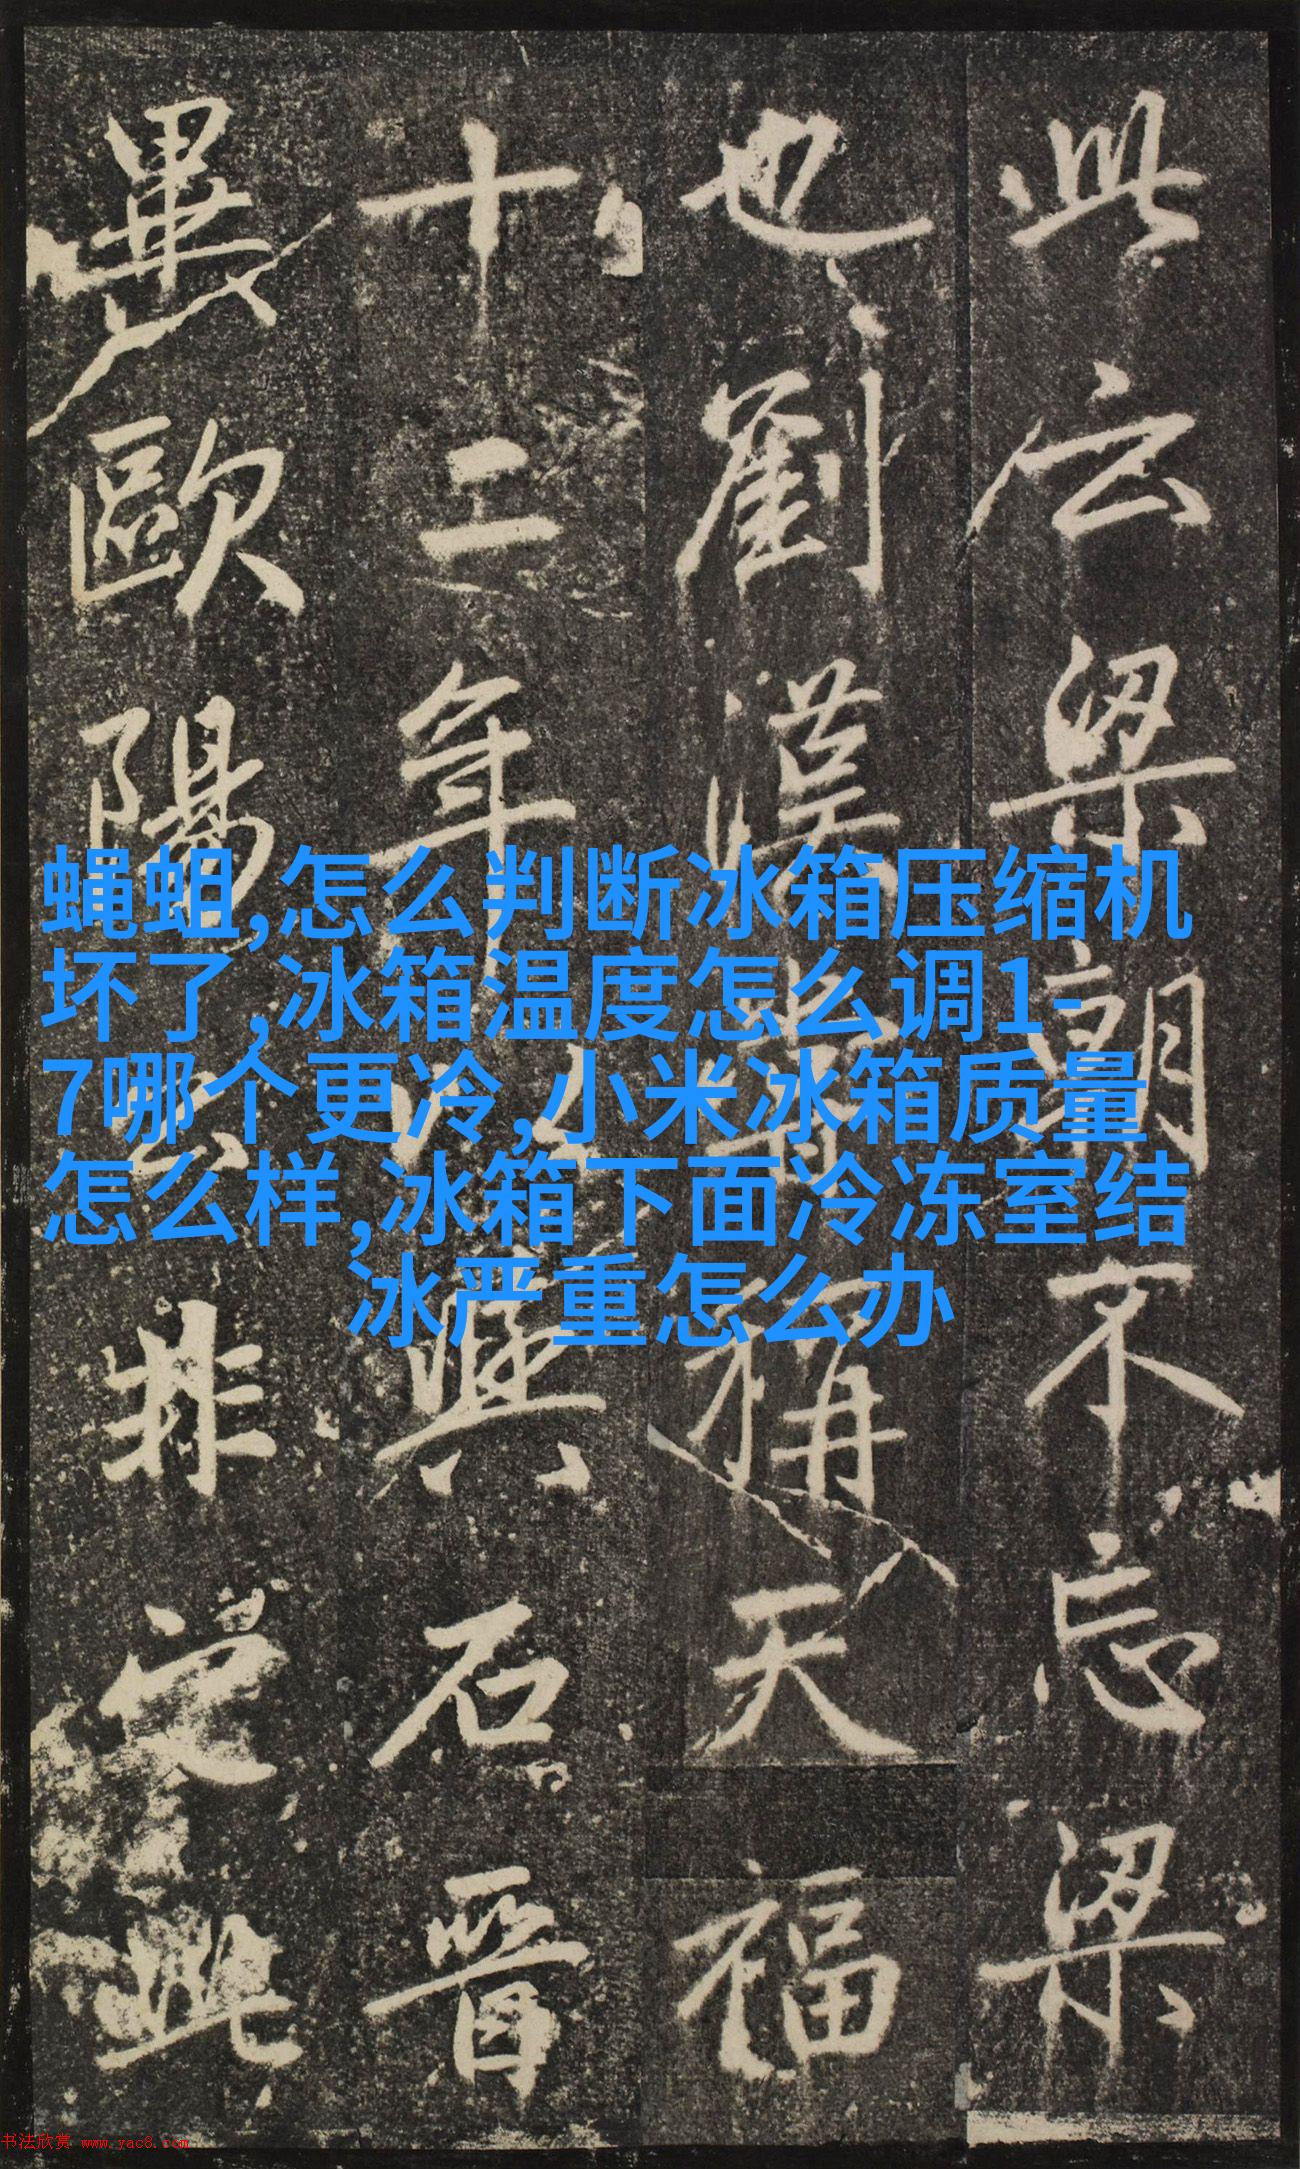 此六梁朝不忘梁
也劉漢時稱天福
十二年
興石晉
畢歐陽公非受此
蝇蛆,怎么判断冰箱压缩机
坏了,冰箱温度怎么调1-
7哪个更冷,小米冰箱质量
怎么样,冰箱下面冷冻室结
冰严重怎么办
书法欣赏 www.yac8.com